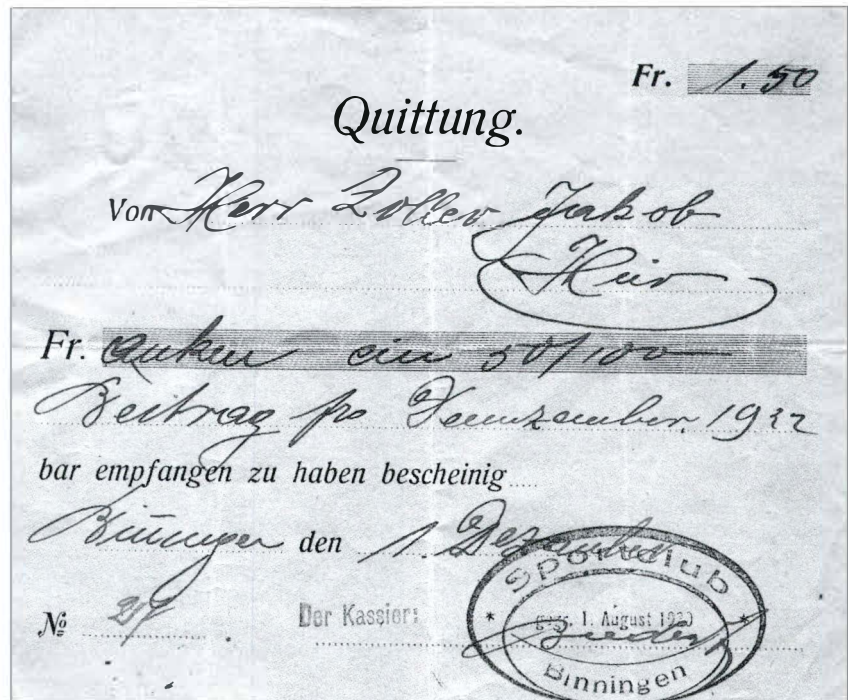 Fr. 1.50
Quittung.
Von Herr Zoller Jakob
Hier
Fr. anken ein 50/100
Beitrag pro 1932
bar empfangen zu haben bescheinig
Binningen den 1. Dezember
№
Der Kassier:
Sportclub
gegr. 1. August 1930
Binningen